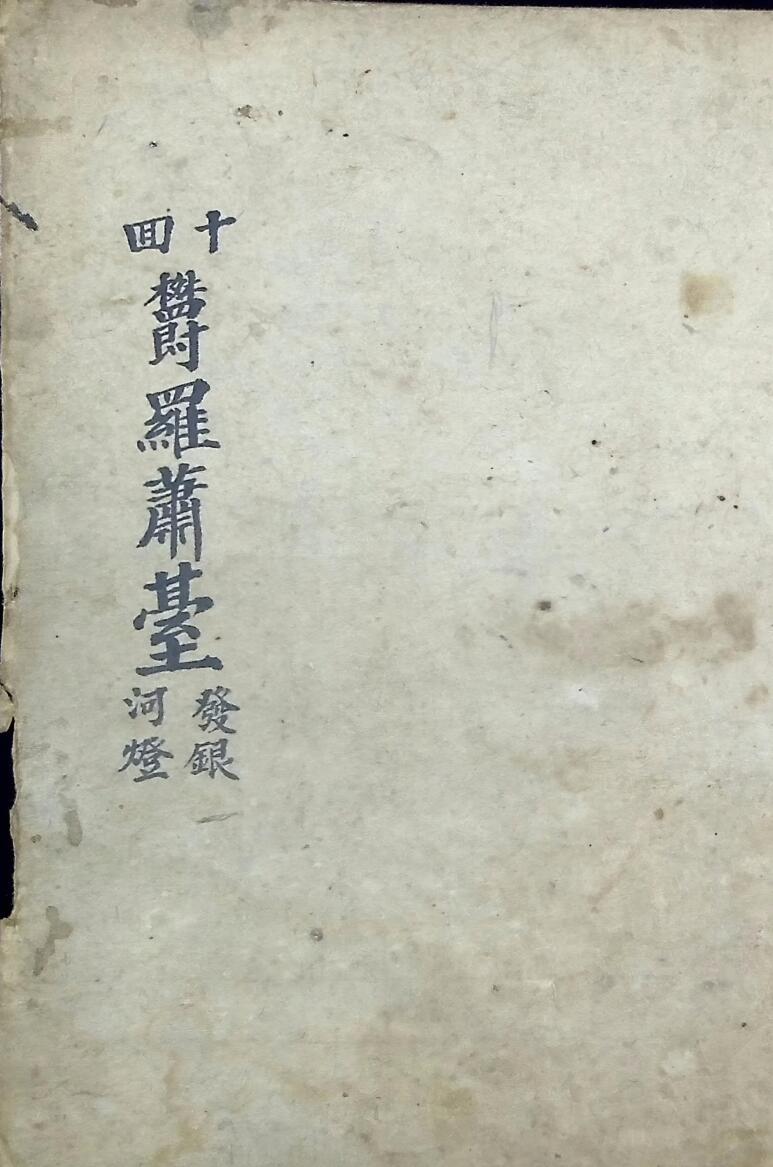 十回
鬱羅蕭臺
發銀
河燈